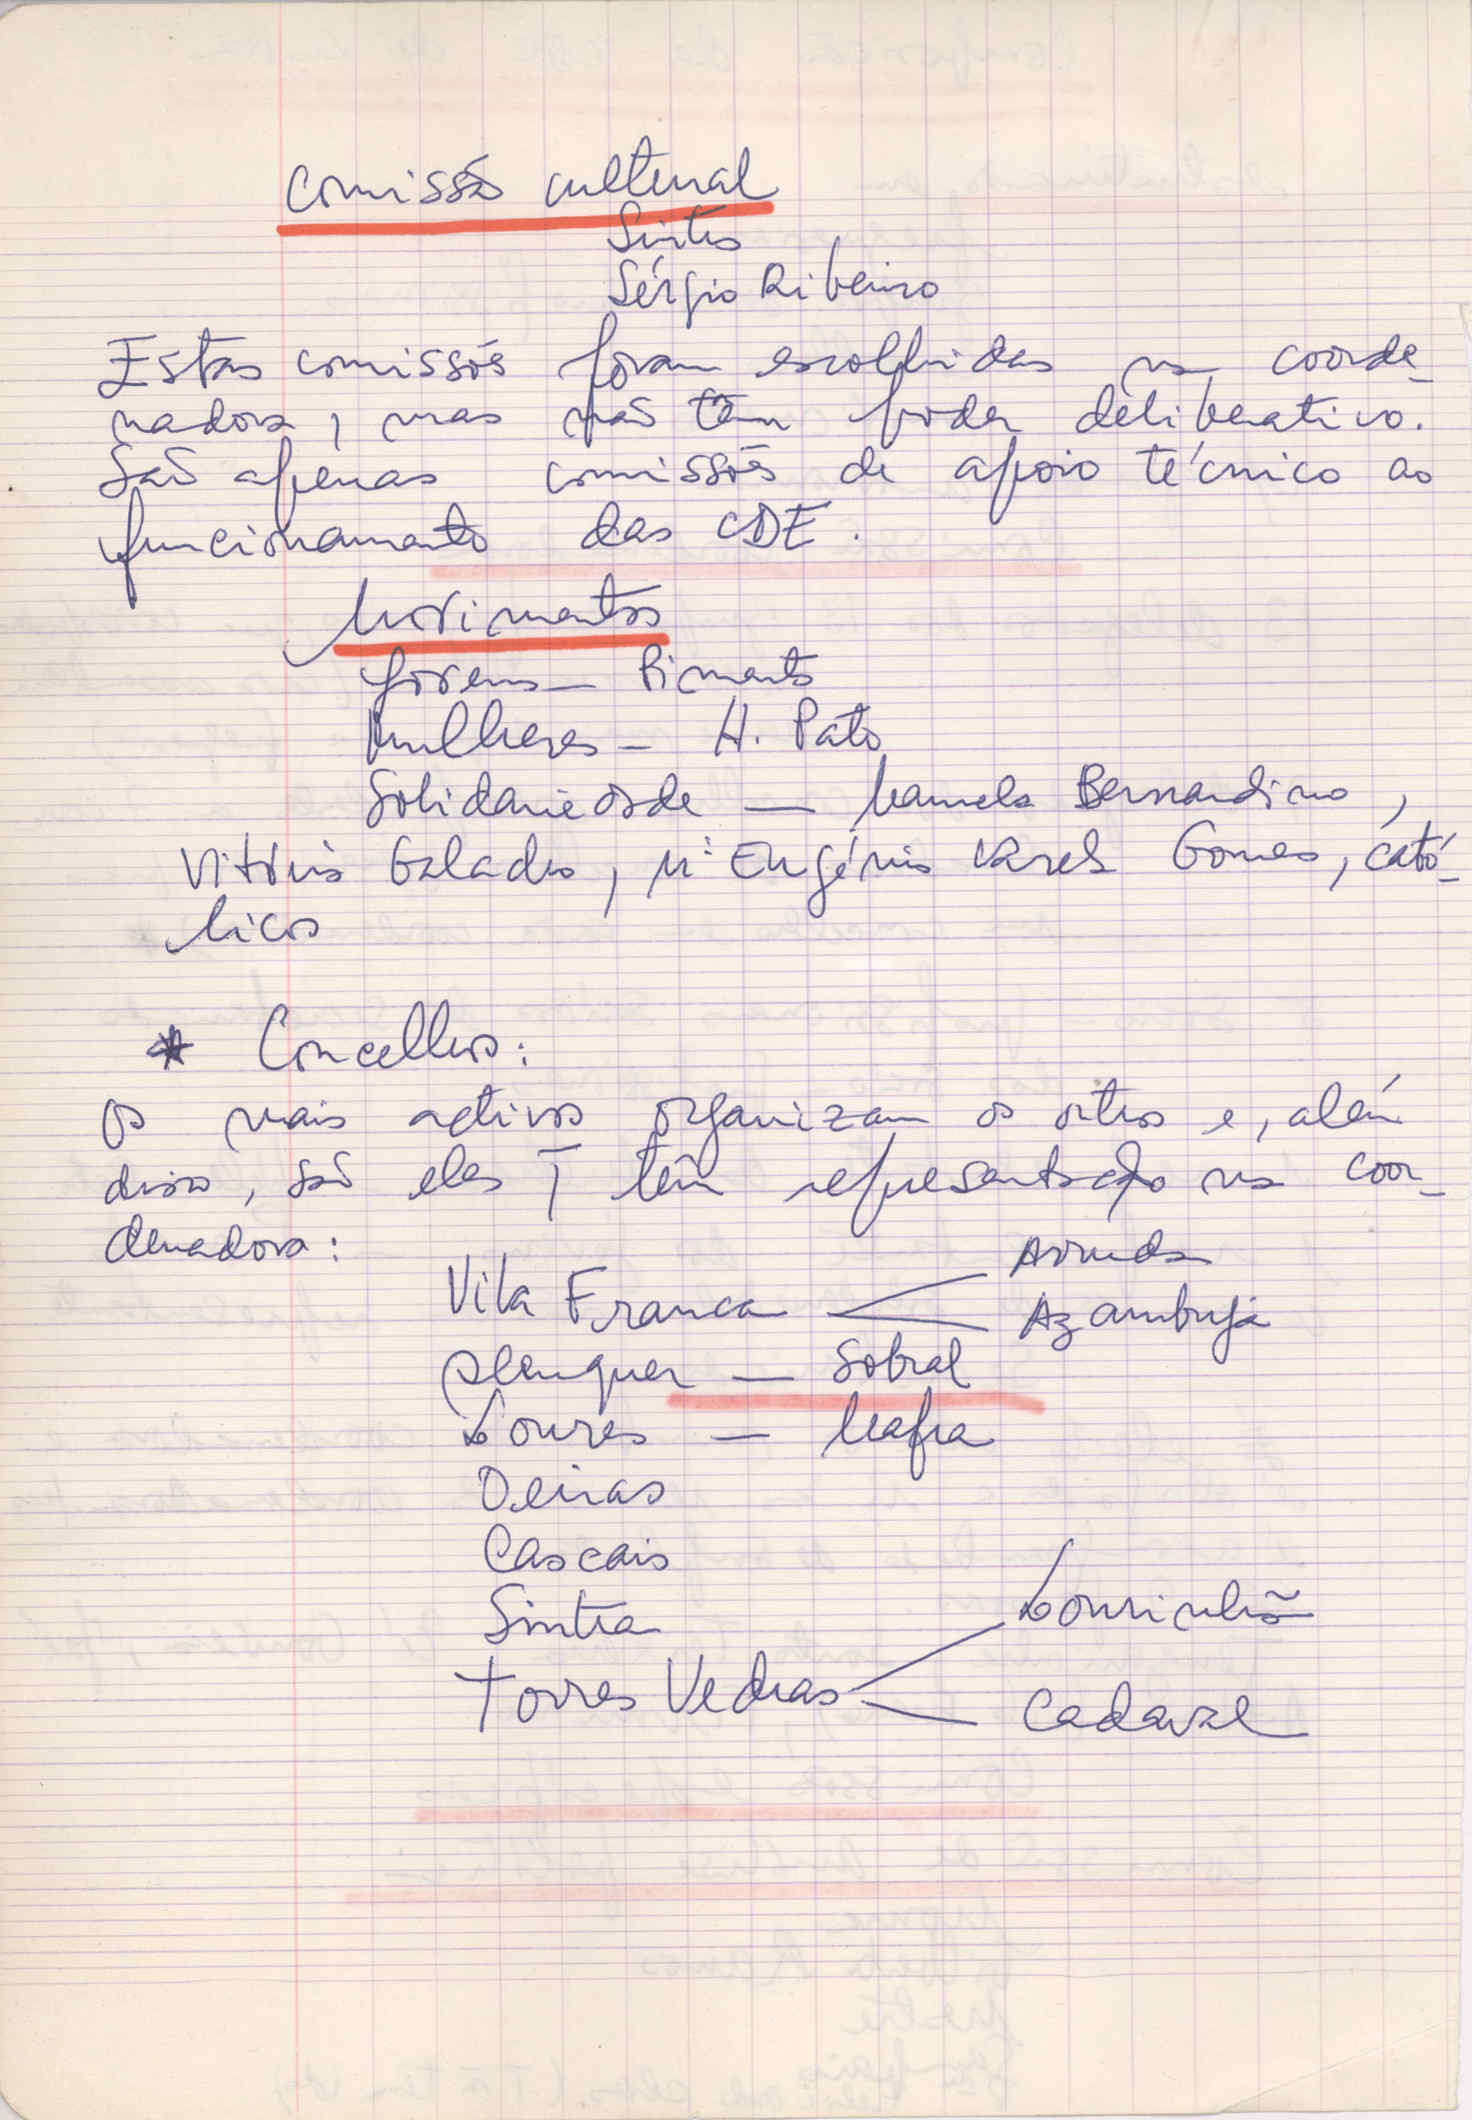 Comissão cultural
Sérgio Ribeiro
Estas comissões foram escolhidas na coorde-
nadora, mas não têm poder deliberativo.
São apenas comissões de apoio técnico ao
funcionamento das CDE.
Movimentos
Jovens — Pimenta
Mulheres — H. Pato
Solidariedade — Manuela Bernardino,
Vitória Galado, Mª Eugénia Varela Gomes, cató-
licos
* Concelhos:
Os mais activos organizam os outros e, além
disso, são eles q têm representação na coor-
denadora:
Vila Franca Arruda
Azambuja
Alenquer — Sobral
Loures — Mafra
Oeiras
Cascais
Sintra Lourinhã
Torres Vedras
Cadaval